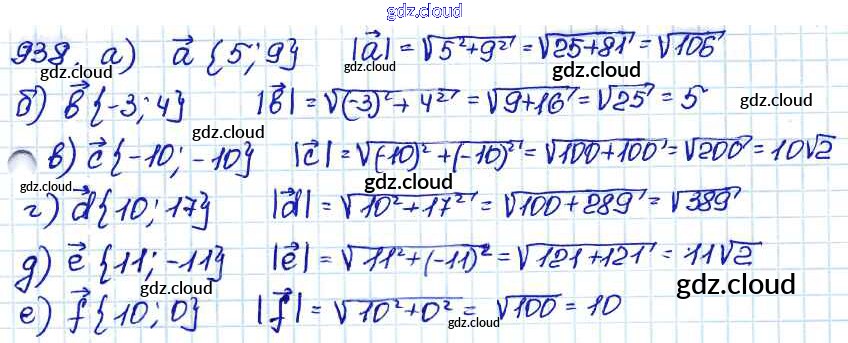 gdz.cloud
938. а) a⃗ {5; 9} |a⃗| = √(5²+9²) = √(25+81) = √106
gdz.cloud gdz.cloud gdz.cloud
б) b⃗ {-3; 4} |b⃗| = √((-3)² + 4²) = √(9+16) = √25 = 5
gdz.cloud gdz.cloud
в) c⃗ {-10; -10} |c⃗| = √((-10)² + (-10)²) = √(100+100) = √200 = 10√2
gdz.cloud gdz.cloud gdz.cloud
г) d⃗ {10; 17} |d⃗| = √(10² + 17²) = √(100 + 289) = √389
gdz.cloud
д) e⃗ {11; -11} |e⃗| = √(11² + (-11)²) = √(121 + 121) = 11√2
gdz.cloud gdz.cloud
е) f⃗ {10; 0} |f⃗| = √(10² + 0²) = √100 = 10
gdz.cloud